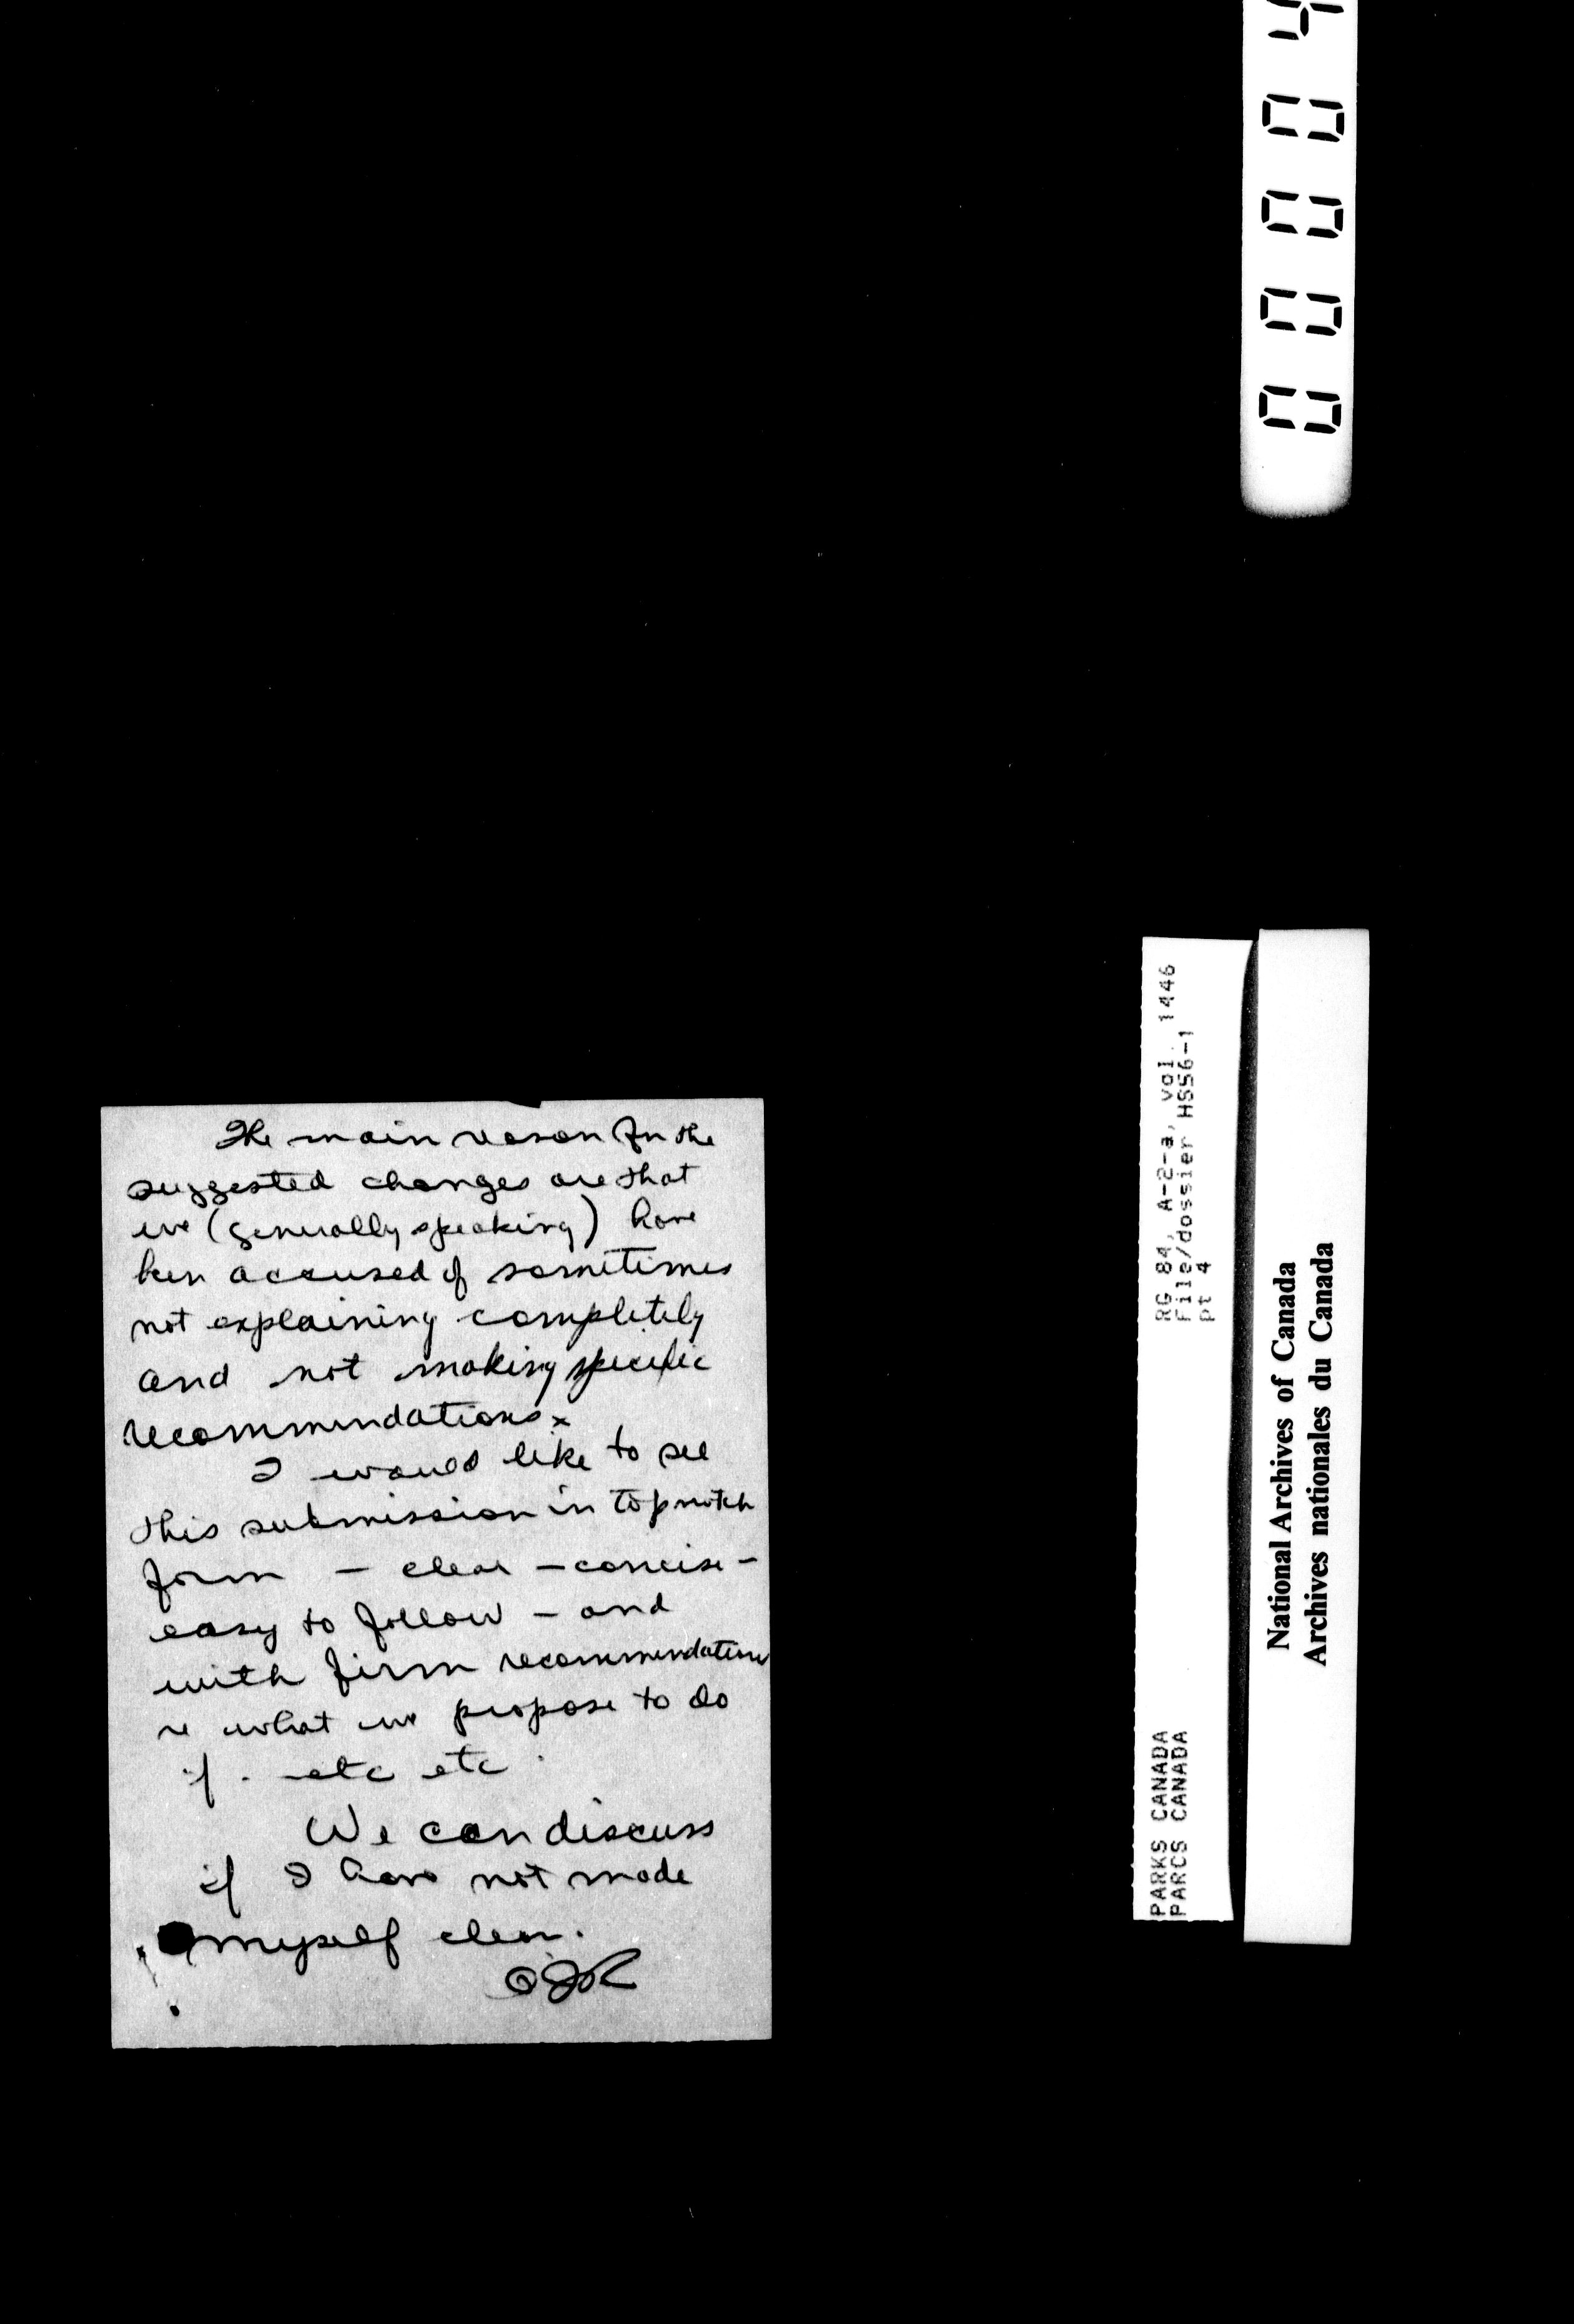 The main reason for the
suggested changes are that
we (generally speaking) have
been accused of sometimes
not explaining completely
and not making specific
recommendations x
I would like to see
this submission in topnotch
form - clear - concise -
easy to follow - and
with firm recommendations
re what we propose to do
if . etc etc .
We can discuss
if I have not made
myself clear.
RG 84, A-2-a, vol. 1446
File/dossier HS56-1
pt 4
PARKS CANADA
PARCS CANADA
National Archives of Canada
Archives nationales du Canada